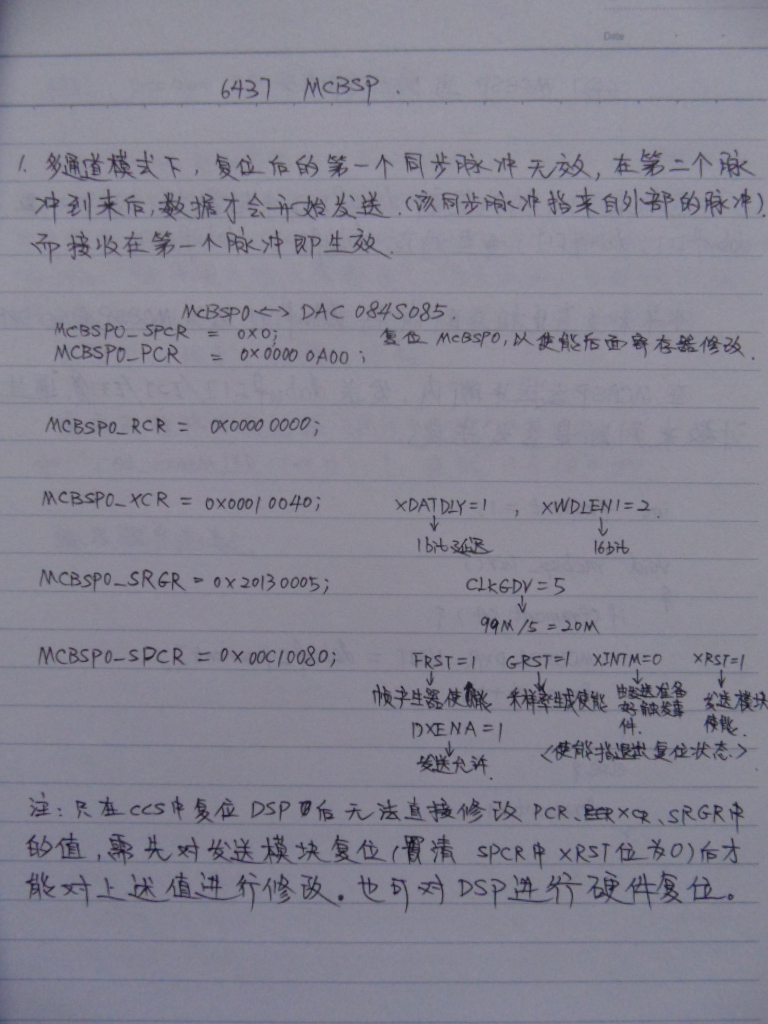 Date
6437 MCBSP.
1. 多通道模式下,复位后的第一个同步脉冲无效,在第二个脉
冲到来后,数据才会开始发送.(该同步脉冲指来自外部的脉冲)
而接收在第一个脉冲即生效.
McBSP0<->DAC 084S085.
MCBSP0_SPCR = 0X0; 复位McBSP0,以使能后面寄存器修改.
MCBSP0_PCR = 0X0000 0A00;
MCBSP0_RCR = 0X0000 0000;
MCBSP0_XCR = 0X0001 0040; XDATDLY=1, XWDLEN1=2.
1bit延迟 16bit
MCBSP0_SRGR = 0X20130005; CLKGDV=5
99M/5=20M
MCBSP0_SPCR = 0X00C10080; FRST=1 GRST=1 XINTM=0 XRST=1
帧产生器使能 采样率生成使能 由发送准备 发送模块
好触发事 使能.
件.
DXENA=1 <使能指退出复位状态>
发送允许.
注:只在CCS中复位DSP后无法直接修改PCR、XCR、SRGR中
的值,需先对发送模块复位(置清SPCR中XRST位为0)后才
能对上述值进行修改。也可对DSP进行硬件复位。